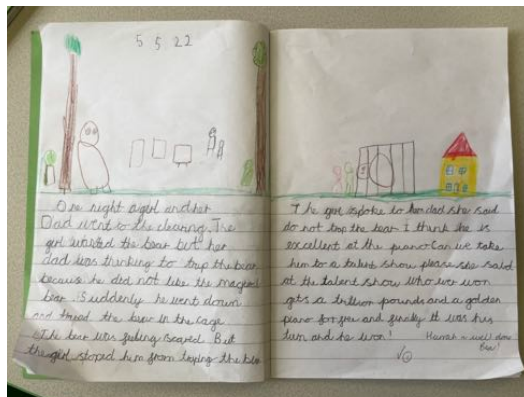 5 5 22
One night a girl and her
Dad went to the clearing. The
girl wanted the bear but her
dad was thinking to trap the bear
because he did not like the magical
bear. Suddenly he went down
and the bear in the cage.
The bear was feeling scared. But
the girl stoped him from the
The girl spoke to her dad she said
do not trap the bear I think he is
excellent at the piano Can we take
him to a talent show please she said
at the talent show who ever won
gets a trillion pounds and a golden
piano for free and finally it was his
turn and he won!
Hannah - well done